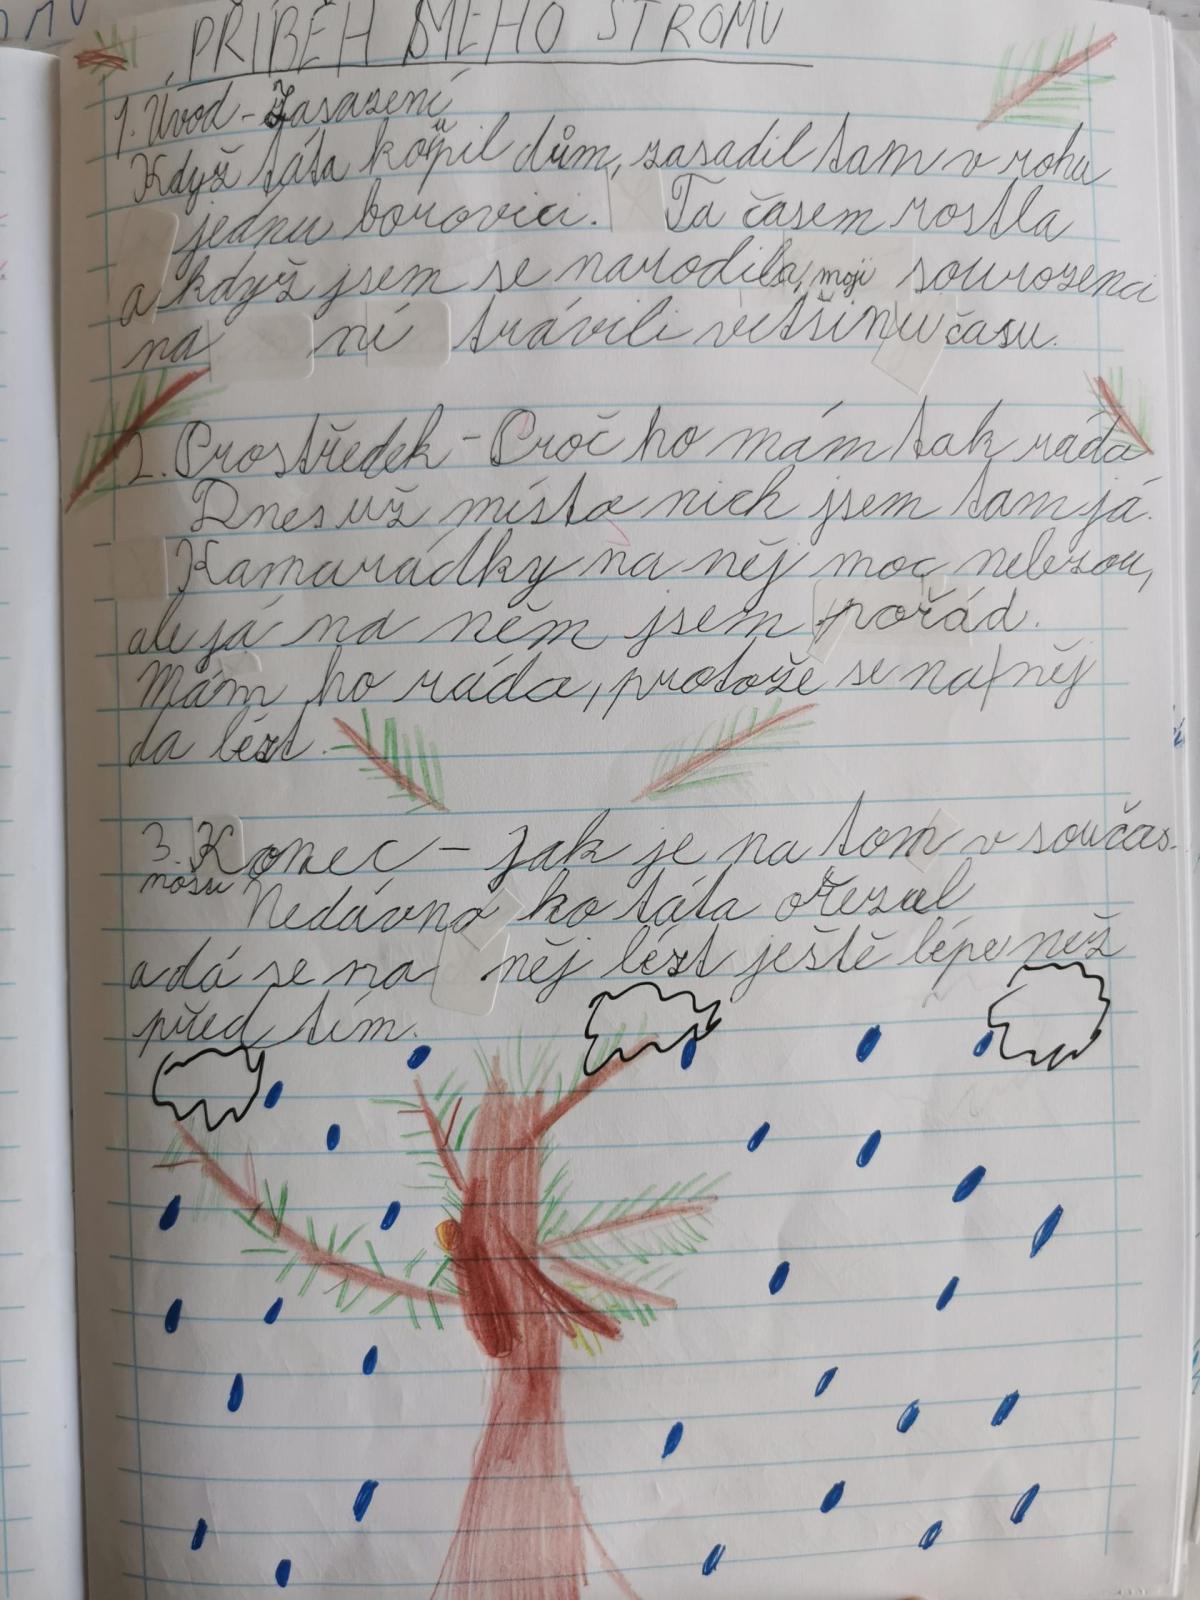 PŘÍBĚH MÉHO STROMU
1. Úvod - Zasazení
Když táta koupil dům, zasadil tam v rohu
jednu borovici. Ta časem rostla
a když jsem se narodila, moji sourozenci
na ní trávili vetšinu času.
2. Prostředek - Proč ho mám tak ráda
Dnes už místo nich jsem tam já.
Kamarádky na něj moc nelezou,
ale já na něm jsem pořád.
Mám ho ráda, protože se na něj
dá lézt.
3. Konec - Jak je na tom v součas-
nosti
Nedávno ho táta ořezal
a dá se na něj lézt ještě lépe než
před tím.